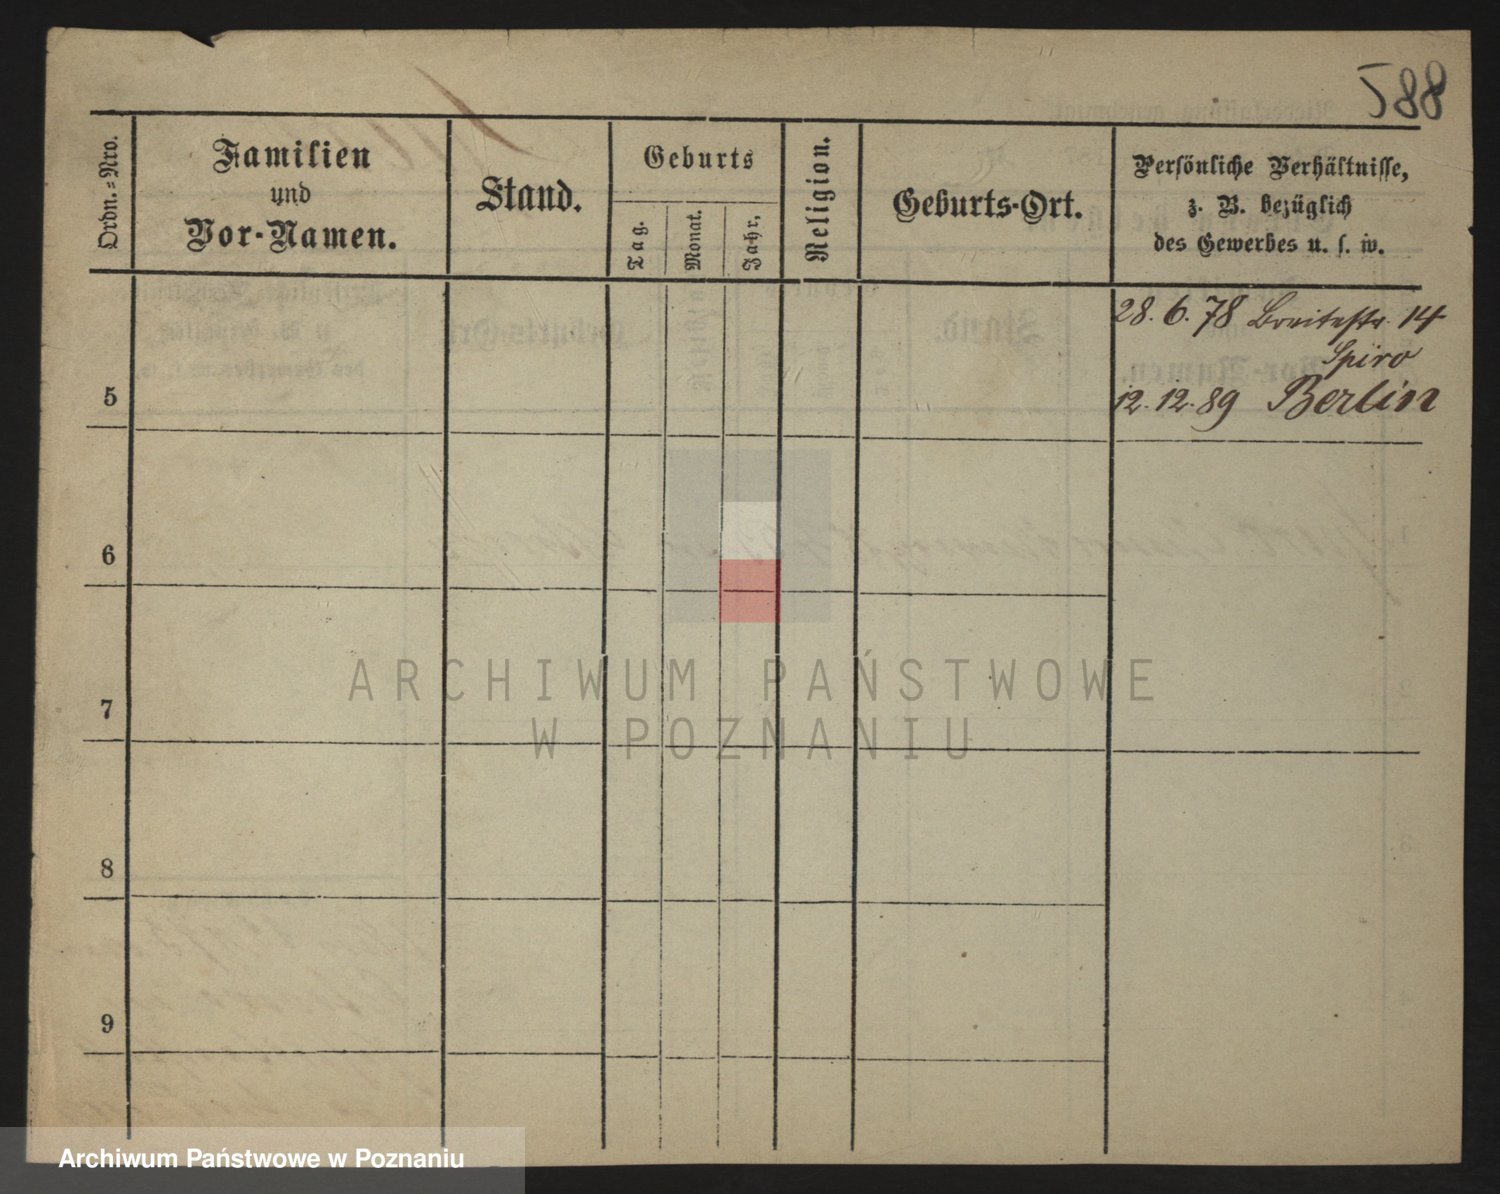 588
Ordn.=Nro.
Familien
und
Vor-Namen.
Stand.
Geburts
Tag.
Monat.
Jahr,
Religion.
Geburts-Ort.
Persönliche Verhältnisse,
z. B. bezüglich
des Gewerbes u. s. w.
28. 6. 78 Breitestr. 14
Spiro
5
12. 12. 89 Berlin
6
7
8
9
ARCHIWUM PAŃSTWOWE
W POZNANIU
Archiwum Państwowe w Poznaniu